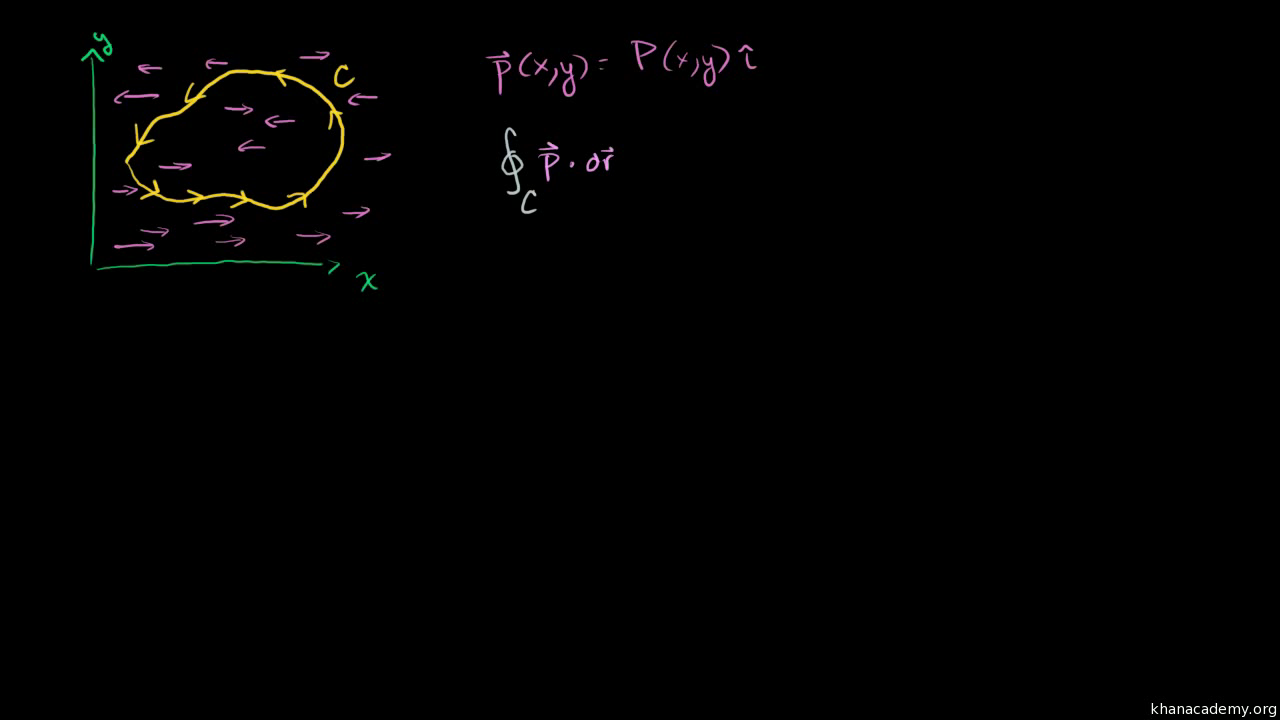 y
C
x
p⃗(x,y) = P(x,y) î
∮_C p⃗ · dr⃗
khanacademy.org